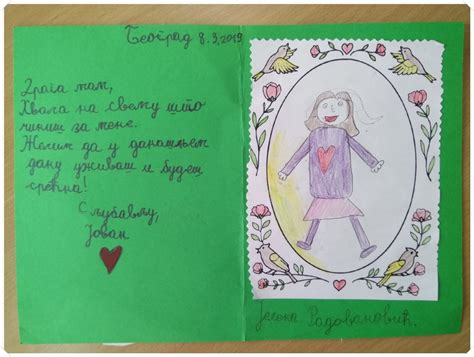 Београд 8.3.2019
Драга мам,
Хвала на свему што
чиниш за мене.
Желим да у данашњем
дану уживаш и будеш
срећна!
С љубављу,
Јован
Јелена Радовановић.